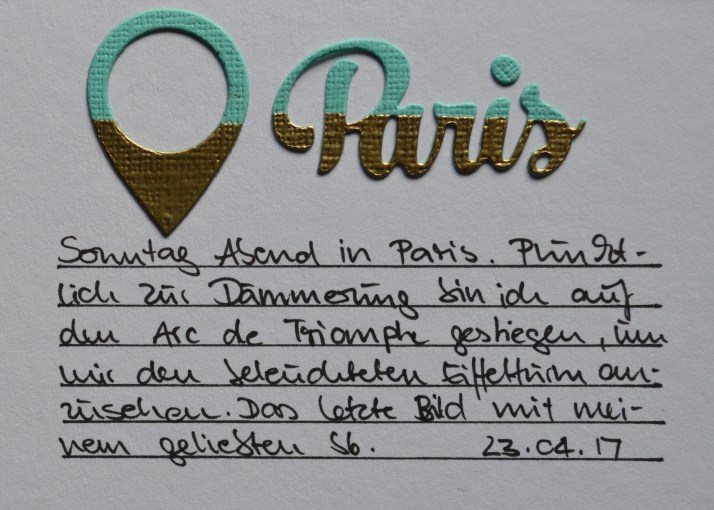 Paris
Sonntag Abend in Paris. Pünkt-
lich zur Dämmerung bin ich auf
den Arc de Triomphe gestiegen, um
mir den beleuchteten Eiffelturm an-
zusehen. Das letzte Bild mit mei-
nem geliebten S6. 23.04.17